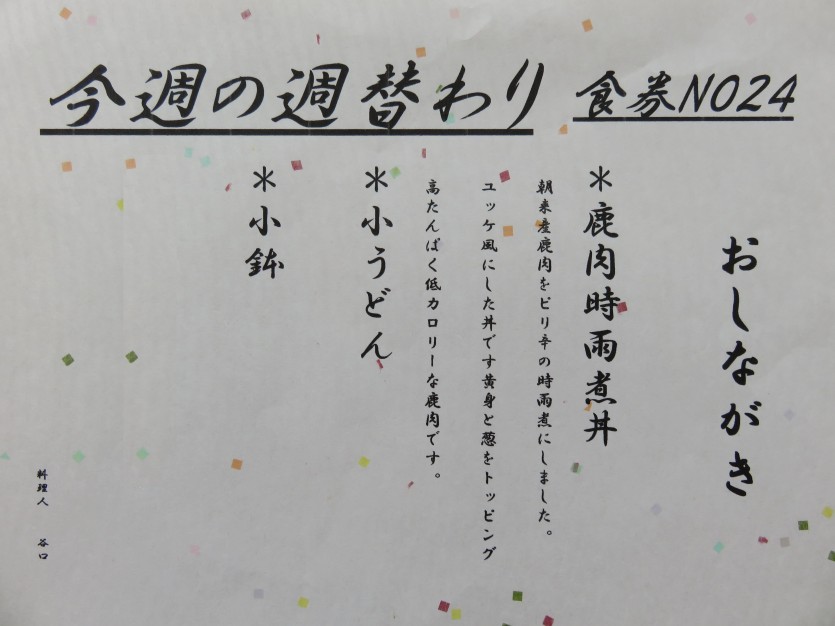 今週の週替わり
食券NO24
おしながき
＊鹿肉時雨煮丼
朝来産鹿肉をピリ辛の時雨煮にしました。
ユッケ風にした丼です黄身と葱をトッピング
高たんぱく低カロリーな鹿肉です。
＊小うどん
＊小鉢
料理人 谷口